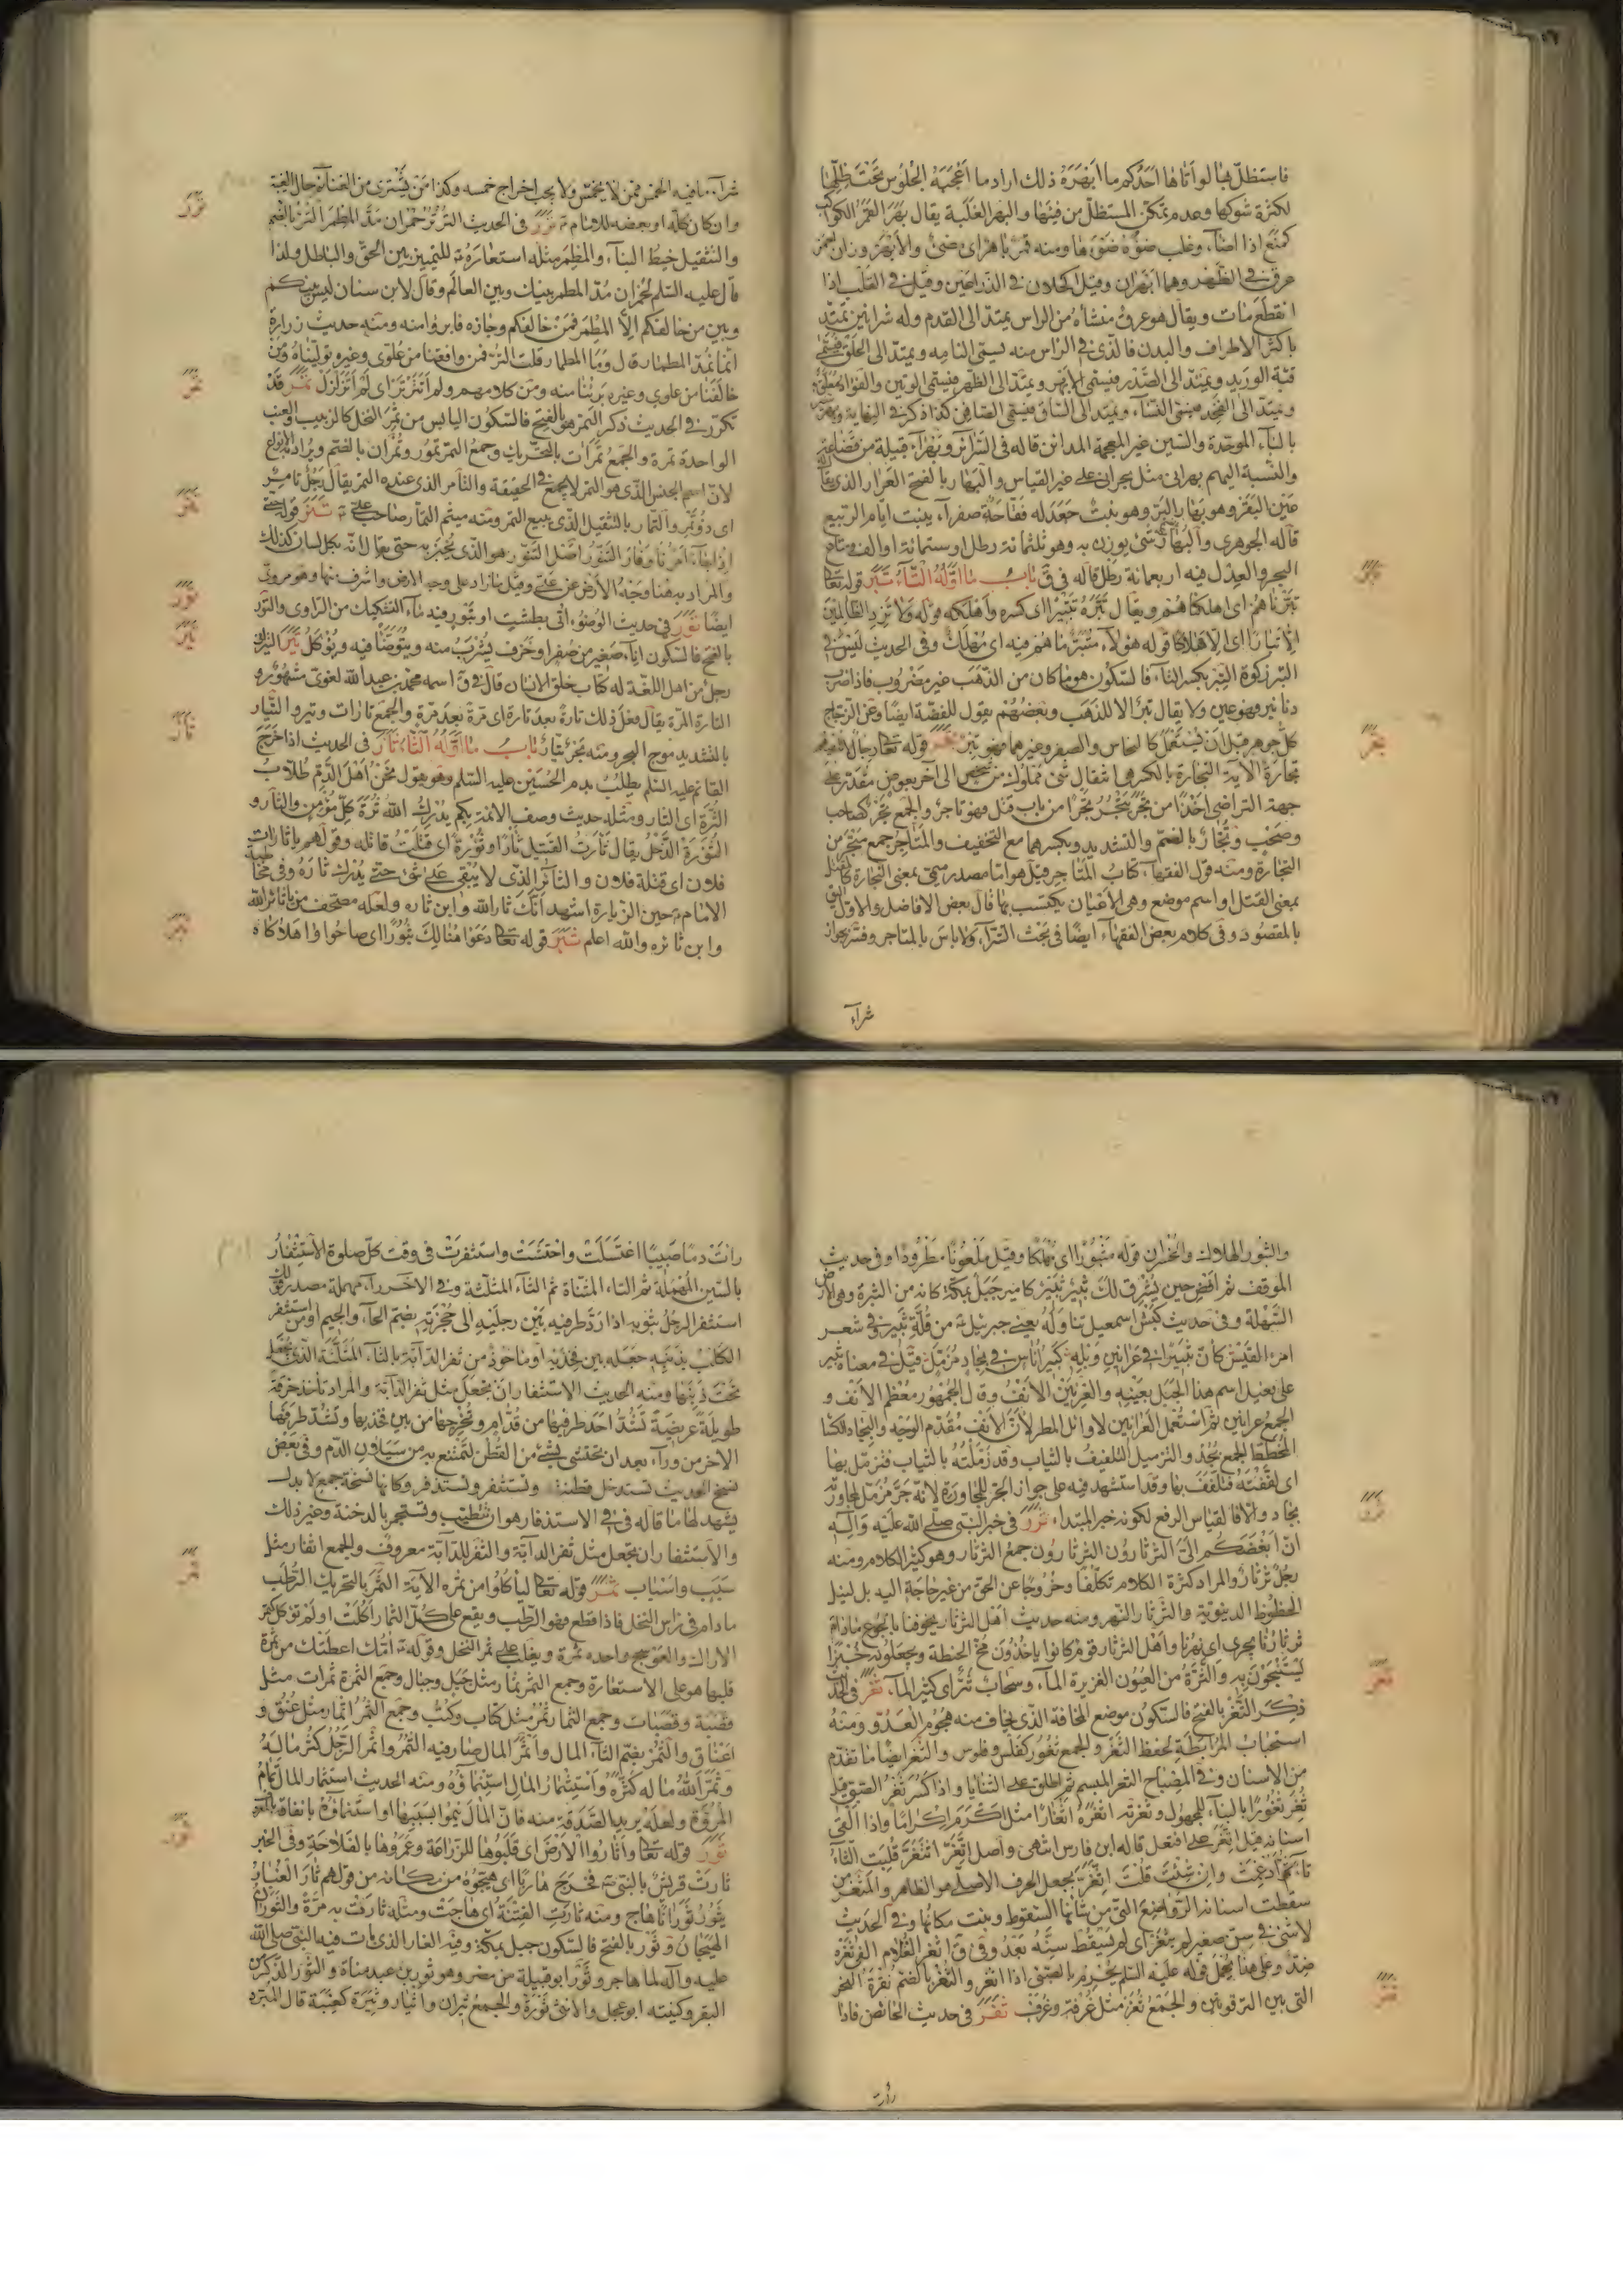 فاستظل بها لو أتاها أحدكم ما أبصره ذلك اراد ما أعجبه الجلوس تحت ظلها
لكثرة شوكها وعدم تمكن المستظل من فيئها والبهر الغلبة يقال بهر القمر الكواكب
كمنع اذا اضاء وغلب ضوءه ضوءها ومنه قمر باهر اى مضئ والأبهر وزان جعفر
عرق فى الظهر وهما ابهران وقيل الاكحلان فى الذراعين وقيل فى القلب اذا
انقطع مات ويقال هو عرق منشاه من الراس يمتد الى القدم وله شرائين يتصل
باكثر الاطراف والبدن فالذى فى الراس منه يسمى النامه ويمتد الى الحلق فيسمى
فيه الوريد ويمتد الى الصدر فيسمى الابهر ويمتد الى الظهر فيسمى الوتين والفؤاد معلق به
ويمتد الى الفخذ فيسمى النسا ويمتد الى الساق فيسمى الصافن كذا ذكر فى النهاية
بالباء الموحدة والسين غير المعجمة المدائن قاله فى السرائر وبهراء قبيلة من قضاعة
والنسبة اليهم بهرانى مثل بحرانى على غير القياس والبهار بالفتح العرار الذى يقال له
عين البقر وهو بهار البر وهو نبت جعد له فقاحة صفراء ينبت ايام الربيع
قاله الجوهرى والبهار شئ يوزن به وهو ثلثمائة رطل او ستمائة او الف ومتاع
البحر والعدل فيه اربعمائة رطل قاله فى ق باب ما اوله التاء تبر قوله تعالى
تبرناهم اى اهلكناهم ويقال تبره تتبيرا اى كسره واهلكه قوله ولا تزد الظالمين
الا تبارا اى الا هلاكا قوله هؤلاء متبر ما هم فيه اى مهلك وفى الحديث ليس فى
التبر زكوة التبر بكسر التاء فالسكون هو ما كان من الذهب غير مضروب فاذا ضرب
دنانير فهو عين ولا يقال تبر الا للذهب وبعضهم يقول للفضة ايضا وعن الزجاج
كل جوهر قبل ان يستعمل كالنحاس والصفر وغيرهما فهو تبر تجر قوله تعالى رجال لا تلهيهم
تجارة الآية التجارة بالكسر هى انتقال شئ مملوك من شخص الى آخر بعوض مقدر على
جهة التراضى اخذا من تجر يتجر تجرا من باب قتل فهو تاجر والجمع تجر كصاحب
وصحب وتجار بالضم والتشديد وبكسرهما مع التخفيف والمتاجر جمع متجر من
التجارة ومنه قول الفقهاء كتاب المتاجر قيل هو اما مصدر ميمى بمعنى التجارة كالمقتل
بمعنى القتل او اسم موضع وهى الاعيان يكتسب بها قال بعض الافاضل والاول اليق
بالمقصود وفى كلام بعض الفقهاء ايضا فى بحث الشراء ولا باس بالمتاجر وفسر بجواز
شراء
شراء ما فيه الخمس ممن لا يخمس ولا يجب اخراج خمسه وكذا من يشترى من الغنائم حال الغيبة
وان كان كله او بعضه للامام ترر فى الحديث التر تر حمران مد المطمر التر بالضم
والتثقيل خيط البناء والمطمر مثله استعارة للتمييز بين الحق والباطل ولذا
قال عليه السلم لحمران مد المطمر بينك وبين العالم وقال لابن سنان ليس بينكم
وبين من خالفكم الا المطمر فمن خالفكم وجازه فابروا منه ومنه حديث زرارة
انما نمد المطمار قال وما المطمار قلت التر فمن وافقنا من علوى وغيره توليناه ومن
خالفنا من علوي وغيره برئنا منه ومن كلامهم ولم اتترتر اى لم اتزلزل تمر قد
تكرر فى الحديث ذكر التمر هو بالفتح فالسكون اليابس من ثمر النخل كالزبيب والعنب
الواحدة تمرة والجمع تمرات بالتحريك وجمع التمر تمور وتمران بالضم ويراد به الانواع
لان اسم الجنس الذى هو التمر لا يجمع فى الحقيقة والتامر الذى عنده التمر يقال رجل تامر
اى ذو تمر والتمار بالتثقيل الذى يبيع التمر ومنه ميثم التمار صاحب على تنر قوله حتى
اذا جاء امرنا وفار التنور اصل التنور هو الذى يخبز به حتى يقال انه بكل لسان كذلك
والمراد به هنا وجه الأرض عن على وقيل ما زاد على وجه الارض واشرف منها وهو مروى
ايضا تور فى حديث الوضوء اتى بطشت او بتور فيه ماء التشكيك من الراوى والتور
بالفتح فالسكون اناء صغير من صفر او خزف يشرب منه ويتوضأ فيه ويؤكل تير التيار
رجل من اهل اللغة له كتاب خلق الانسان قال فى ق اسمه محمد بن عبد الله لغوى مشهور و
التارة المرة يقال فعل ذلك تارة بعد تارة اى مرة بعد مرة والجمع تارات وتير والتيار
بالتشديد موج البحر ومنه بحر تيار باب ما اوله الثاء ثار فى الحديث اذا خرج
القائم عليه السلم يطلب بدم الحسين عليه السلم وهو يقول نحن اهل الدم طلاب
الثرة اى الثار ومثله حديث وصف الائمة بكم يدرك الله ترة كل مؤمن والثار و
الثورة الذحل يقال ثارت القتيل ثارا وثؤرة اى قتلت قاتله وقولهم يا ثارات
فلان اى قتلة فلان والثائر الذى لا يبقى على شئ حتى يدرك ثاره وفى مخاطبة
الامام حين الزيارة اشهد انك ثار الله وابن ثاره ولعله مصحف من يا ثائر الله
وابن ثائره والله اعلم ثبر قوله تعالى دعوا هنالك ثبورا اى صاحوا واهلاكاه
والثبور الهلاك والخسران قوله مثبورا اى مهلكا وقيل ملعونا مطرودا وفى حديث
الموقف ثم افض حين يشرق لك ثبير ثبير كامير جبل بمكة كانه من الثبرة وهى الارض
السهلة وفى حديث كبش اسمعيل تناوله يعنى جبرئيل من قلة ثبير وفى شعر
امرء القيس كأن ثبيرا فى عرانين وبله كبير اناس فى بجاد مزمل قيل فى معناه ثبير
على فعيل اسم هذا الجبل بعينه والعرنين الانف وقال الجمهور معظم الانف و
الجمع عرانين ثم استعمل العرانين لاوائل المطر لان الانف مقدم الوجه والبجاد الكساء
المخطط الجمع بجد والتزميل التلفيف بالثياب وقد زملته بالثياب فتزمل بها
اى لففته فتلفف بها وقد استشهد فيه على جواز الجر للمجاورة لانه جر مزمل لمجاورته
بجاد والا فالقياس الرفع لكونه خبر المبتداء ثرر فى خبر النبى صلى الله عليه وآله
ان ابغضكم الى الثرثارون الثرثارون جمع الثرثار وهو كثير الكلام ومنه
رجل ثرثار والمراد كثرة الكلام تكلفا وخروجا عن الحق من غير حاجة اليه بل لنيل
الحظوظ الدنيوية والثرثار النهر ومنه حديث اهل الثرثار يخوفنا بالجوع مادام
ثرثارنا يجرى اى نهرنا واهل الثرثار قوم كانوا ياخذون مخ الحنطة ويجعلونه خبزا
يستنجون به والثرة من العيون الغزيرة الماء وسحاب ثر اى كثير الماء ثغر فى الحديث
ذكر الثغر بالفتح فالسكون موضع المخافة الذى يخاف منه هجوم العدو ومنه
استحباب المرابطة لحفظ الثغر والجمع ثغور كفلس وفلوس والثغر ايضا ما تقدم
من الاسنان وفى المصباح الثغر المبسم ثم اطلق على الثنايا واذا كسر ثغر الصبى قيل
ثغر ثغورا بالبناء للمجهول وثغرته اثغره اثغارا مثل اكرم اكراما واذا القى
اسنانه قيل اثغر على افتعل قاله ابن فارس انتهى واصل اتغر اثتغر قلبت الثاء
تاء ثم ادغمت وان شئت قلت اثغر بجعل الحرف الاصلى هو الظاهر والمتغر من
سقطت اسنانه الرواضع التى من شانها السقوط ونبت مكانها وفى الحديث
لا شئ فى سن صغير لم يثغر اى لم يسقط سنه بعد وفى ق اثغر الغلام القى ثغره
ضد وعلى هذا يحمل قوله عليه السلم يحرم بالصبى اذا اثغر والثغر بالضم نقرة النحر
التى بين الترقوتين والجمع ثغر مثل غرفة وغرف ثفر فى حديث الحائض فاذا
رأت
رأت دما صبيبا اغتسلت واحتشت واستثفرت فى وقت كل صلوة الاستثفار
بالسين المهملة ثم التاء المثناة ثم الثاء المثلثة وفى الاخر راء مهملة مصدر قولك
استثفر الرجل بثوبه اذا رد طرفيه بين رجليه الى حجزته بضم الحاء والجيم او من استثفر
الكلب بذنبه جعله بين فخذيه او ماخوذ من ثفر الدابة بالثاء المثلثة الذى يجعل
تحت ذنبها ومنه الحديث الاستثفار ان تجعل مثل ثفر الدابة والمراد تاخذ خرقة
طويلة عريضة تشد احد طرفيها من قدام وتخرجها من بين فخذيها وتشد طرفها
الاخر من وراء بعد ان تحتشى بشئ من القطن لتمتنع به من سيلان الدم وفى بعض
نسخ الحديث تستدخل قطنة وتستثفر وتستذفر وكانها نسخة جمع لا بدل
يشهد لها ما قاله فى فى الاستذفار هو ان تتطيب وتستجمر بالدخنة وغير ذلك
والاستثفار ان يجعل مثل ثفر الدابة والثفر للدابة معروف والجمع اثفار مثل
سبب واسباب ثمر قوله تعالى لياكلوا من ثمره الآية الثمر بالتحريك الرطب
مادام فى راس النخل فاذا قطع فهو الرطب ويقع على كل الثمار اكلت او لم توكل كثمر
الاراك والعوسج واحده ثمرة ويغلب على ثمر النخل وقوله امك اعطتك من ثمرة
قلبها هو على الاستعارة وجمع الثمر ثمار مثل جبل وجبال وجمع الثمرة ثمرات مثل
قصبة وقصبات وجمع الثمار ثمر مثل كتاب وكتب وجمع الثمر اثمار مثل عنق و
اعناق والثمر بضم الثاء المال واثمر المال صار فيه الثمر واثمر الرجل كثر ماله
وثمر الله ماله كثره واستثمار المال استنماؤه ومنه الحديث استثمار المال تمام
المروة ولعله يريد الصدقة منه فان المال ينمو بسببها او استنماؤه بانفاقه
ثور قوله تعالى واثاروا الارض اى قلبوها للزراعة وعمروها بالفلاحة وفى الخبر
ثارت قريش بالنبى فخرج هاربا اى هيجوه من مكانه من قولهم ثار الغبار
يثور ثورانا هاج ومنه ثارت الفتنة اى هاجت ومثله ثارت به مرة والثوران
الهيجان وثور بالفتح فالسكون جبل بمكة وفيه الغار الذى بات فيه النبى صلى الله
عليه وآله لما هاجر وثور ابو قبيلة من مضر وهو ثور بن عبد مناة والثور الذكر من
البقر وكنيته ابو عجل والانثى ثورة والجمع ثيران واثيار وثيرة كعنبة قال المبرد